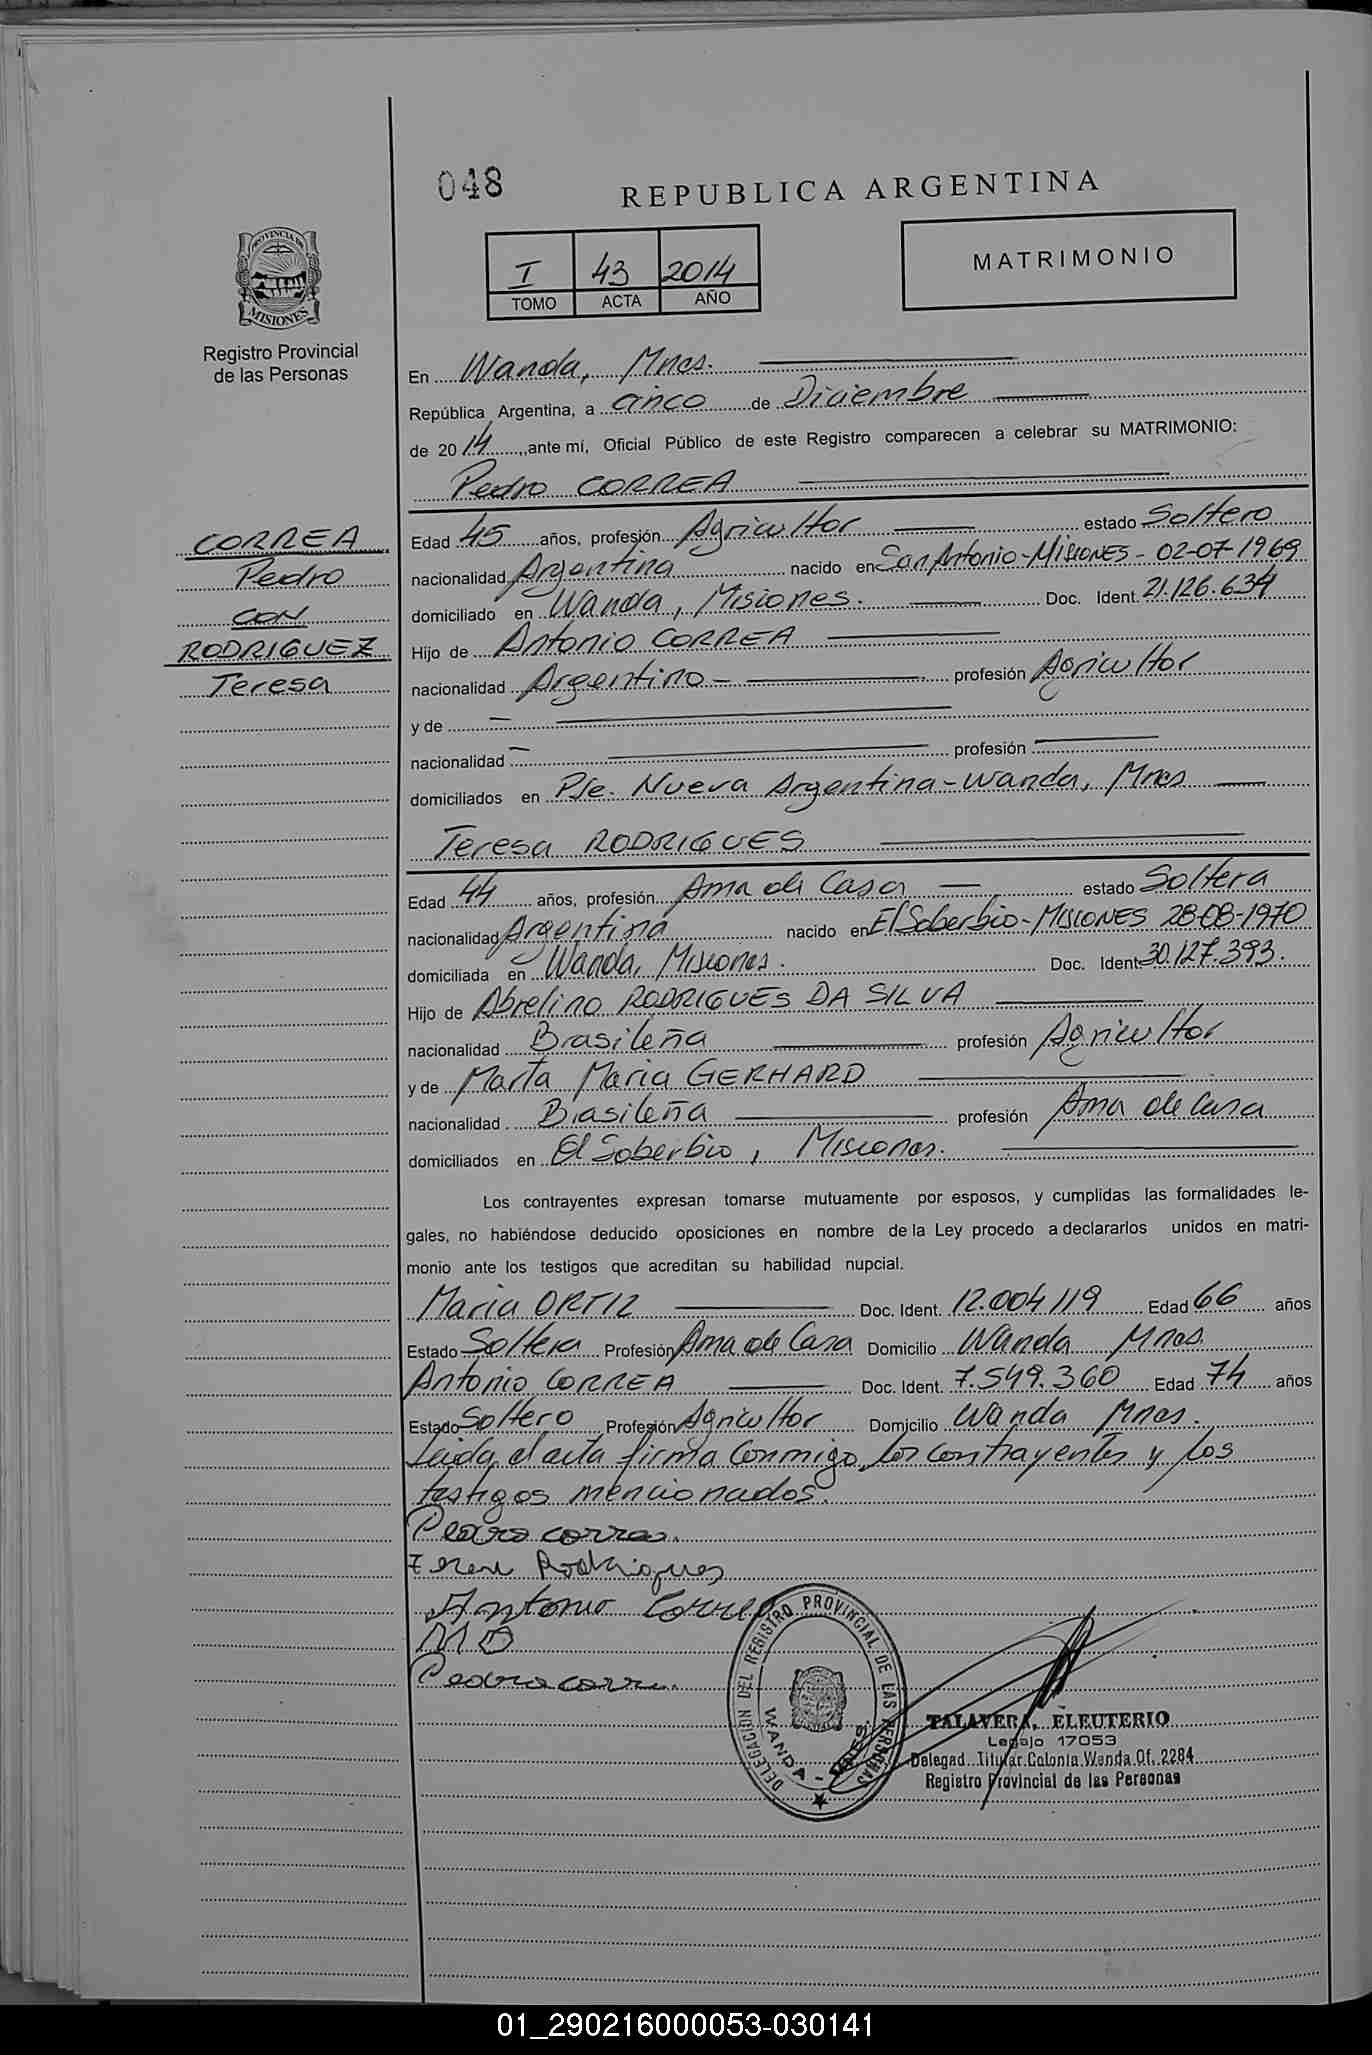 048
REPUBLICA ARGENTINA
I 43 2014
TOMO ACTA AÑO
MATRIMONIO
PROVINCIA DE
MISIONES
Registro Provincial
de las Personas
En Wanda, Mnes.
República Argentina, a cinco de Diciembre
de 2014, ante mí, Oficial Público de este Registro comparecen a celebrar su MATRIMONIO:
Pedro CORREA
CORREA
Pedro
CON
RODRIGUEZ
Teresa
Edad 45 años, profesión Agricultor estado Soltero
nacionalidad Argentina nacido en San Antonio-MISIONES - 02-07-1969
domiciliado en Wanda, Misiones. Doc. Ident. 21.126.634
Hijo de Antonio CORREA
nacionalidad Argentino - profesión Agricultor
y de —
nacionalidad — profesión
domiciliados en Pje. Nueva Argentina-Wanda, Mnes
Teresa RODRIGUES
Edad 44 años, profesión Ama de Casa estado Soltera
nacionalidad Argentina nacido en El Soberbio-MISIONES 28-08-1970
domiciliada en Wanda, Misiones. Doc. Ident. 30.127.393.
Hijo de Abrelino RODRIGUES DA SILVA
nacionalidad Brasileña profesión Agricultor
y de Marta Maria GERHARD
nacionalidad Brasileña profesión Ama de Casa
domiciliados en El Soberbio, Misiones.
Los contrayentes expresan tomarse mutuamente por esposos, y cumplidas las formalidades le-
gales, no habiéndose deducido oposiciones en nombre de la Ley procedo a declararlos unidos en matri-
monio ante los testigos que acreditan su habilidad nupcial.
Maria ORTIZ Doc. Ident. 12.004.119 Edad 66 años
Estado Soltera Profesión Ama de Casa Domicilio Wanda Mnes.
Antonio CORREA Doc. Ident. 7.549.360 Edad 74 años
Estado Soltero Profesión Agricultor Domicilio Wanda Mnes.
Leida el acta firma conmigo los contrayentes y los
testigos mencionados.
Pedro correa.
Rodrigues
Antonio Correa
M O
Pedro
DELEGACION DEL REGISTRO PROVINCIAL DE LAS PERSONAS
WANDA - MNES.
TALAVERA, ELEUTERIO
Legajo 17053
Delegad. Titular Colonia Wanda Of. 2284
Registro Provincial de las Personas
01_290216000053-030141